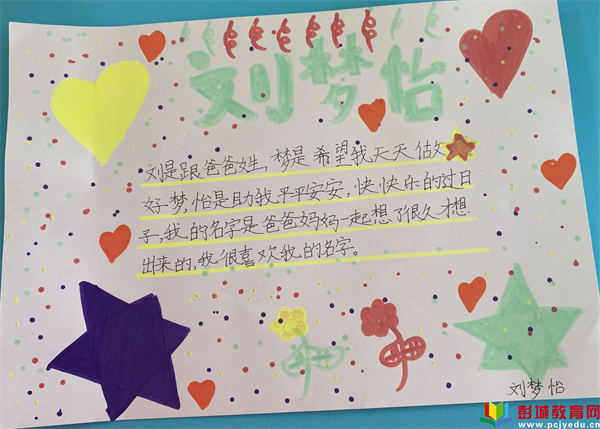 刘梦怡
刘是跟爸爸姓,梦是希望我天天做
好梦,怡是助我平平安安,快快乐的过日
子,我的名字是爸爸妈妈一起想了很久才想
出来的,我很喜欢我的名字。
刘梦怡
彭城教育网
www.pcjyedu.cn